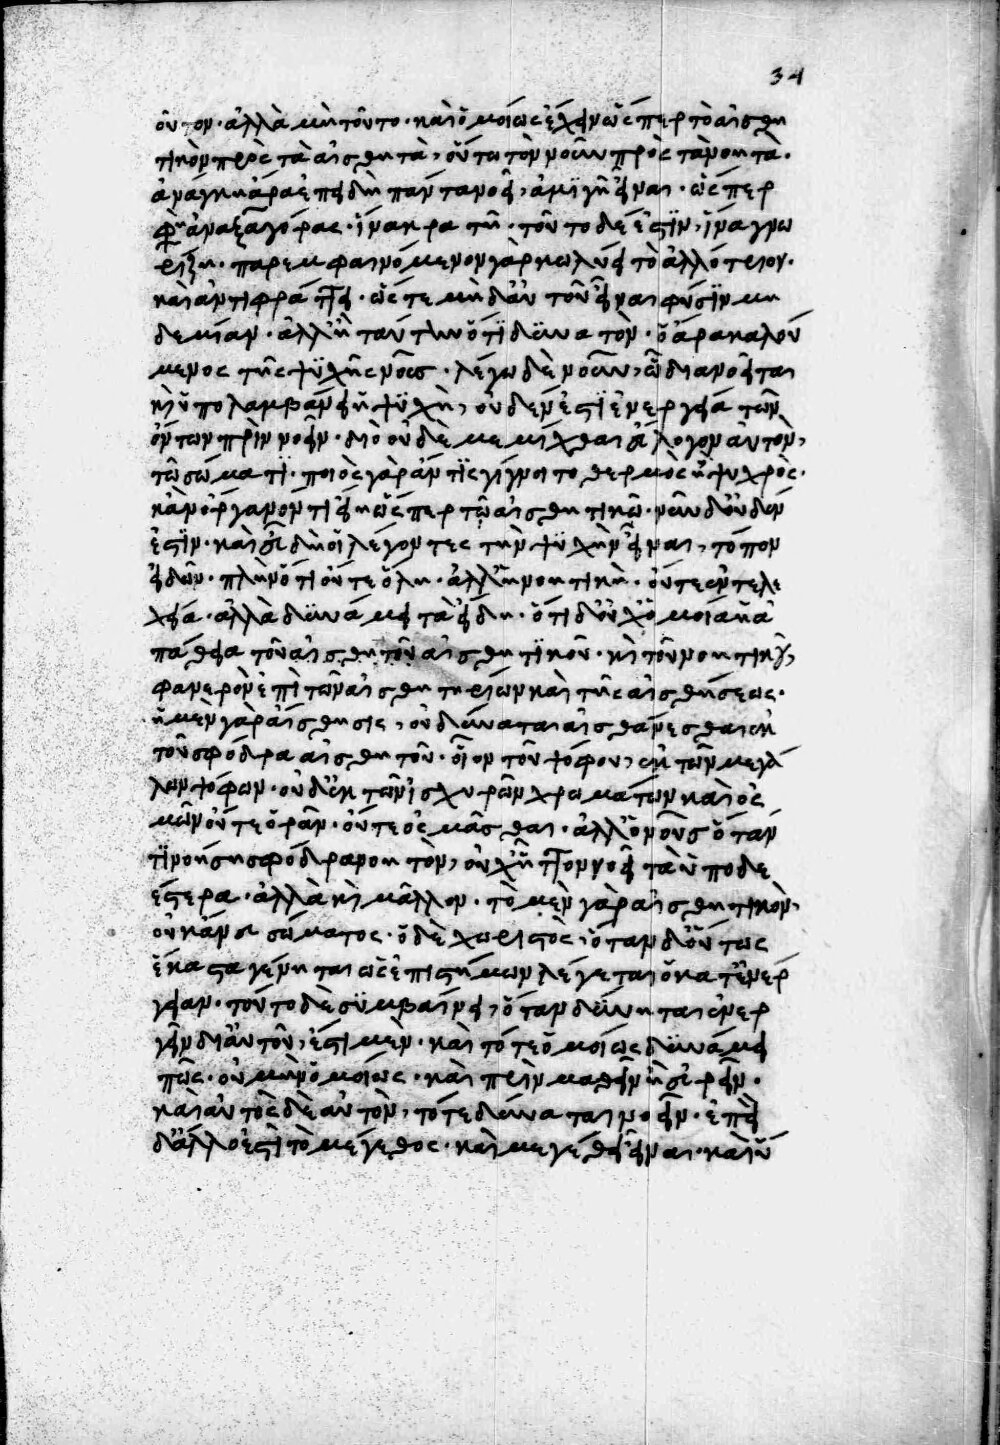 34
οῦτον· ἀλλὰ μὴ τοῦτο· καὶ ὁμοίως ἔχειν ὥσπερ τὸ αἰσθη
τικὸν πρὸς τὰ αἰσθητὰ, οὕτω τὸν νοῦν πρὸς τὰ νοητὰ.
ἀνάγκη ἄρα ἐπειδὴ πάντα νοεῖ, ἀμιγῆ εἶναι· ὥσπερ
φησὶν ἀναξαγόρας· ἵνα κρατῆ· τοῦτο δέ ἐστιν, ἵνα γνω
ρίζῃ· παρεμφαινόμενον γὰρ κωλύει τὸ ἀλλότριον·
καὶ ἀντιφράττει· ὥστε μὴ δ' αὐτοῦ εἶναι φύσιν μη
δεμίαν· ἀλλ' ἢ ταύτην ὅτι δυνατόν· ὁ ἄρα καλού
μενος τῆς ψυχῆς νοῦς· λέγω δὲ νοῦν, ᾧ διανοεῖται
καὶ ὑπολαμβάνει ἡ ψυχὴ, οὐδέν ἐστιν ἐνεργείᾳ τῶν
ὄντων πρὶν νοεῖν· διὸ οὐδὲ μεμίχθαι εὔλογον αὐτὸν,
τῷ σώματι· ποιὸς γὰρ ἄν τις γίγνοιτο θερμὸς ἢ ψυχρὸς·
κἂν ὄργανόν τι εἴη ὥσπερ τῷ αἰσθητικῷ· νῦν δ' οὐδέν
ἐστιν· καὶ εὖ δὴ οἱ λέγοντες τὴν ψυχὴν εἶναι, τόπον
εἰδῶν· πλὴν ὅτι οὔτε ὅλη· ἀλλ' ἡ νοητικὴ· οὔτε ἐντελε
χείᾳ· ἀλλὰ δυνάμει τὰ εἴδη· ὅτι δ' οὐχ ὁμοία ἡ ἀ
πάθεια τοῦ αἰσθητοῦ αἰσθητικοῦ· καὶ τοῦ νοητικοῦ,
φανερὸν ἐπὶ τῶν αἰσθητηρίων καὶ τῆς αἰσθήσεως·
ἡ μὲν γὰρ αἴσθησις, οὐ δύναται αἰσθάνεσθαι ἐκ
τοῦ σφόδρα αἰσθητοῦ· οἷον τοῦ ψόφου, ἐκ τῶν μεγά
λων ψόφων· οὐδ' ἐκ τῶν ἰσχυρῶν χρωμάτων καὶ ὀσ
μῶν οὔτε ὁρᾶν· οὔτε ὀσμᾶσθαι· ἀλλ' ὁ νοῦς ὅταν
τι νοήσῃ σφόδρα νοητὸν, οὐχ ἧττον νοεῖ τὰ ὑποδε
έστερα· ἀλλὰ καὶ μᾶλλον· τὸ μὲν γὰρ αἰσθητικὸν,
οὐκ ἄνευ σώματος· ὁ δὲ χωριστὸς, ὅταν δ' οὕτως
ἕκαστα γένηται ὡς ἐπιστήμων λέγεται ὁ κατ' ἐνέρ
γειαν· τοῦτο δὲ συμβαίνει, ὅταν δύνηται ἐνερ
γεῖν δι' αὑτοῦ, ἔστι μὲν· καὶ τότε ὁμοίως δυνάμει
πῶς· οὐ μὴν ὁμοίως· καὶ πρὶν μαθεῖν ἢ εὑρεῖν·
καὶ αὐτὸς δὲ αὑτὸν, τότε δύναται νοεῖν· ἐπεὶ
δ' ἄλλο ἐστὶ τὸ μέγεθος· καὶ μεγέθει εἶναι· καὶ ὕ